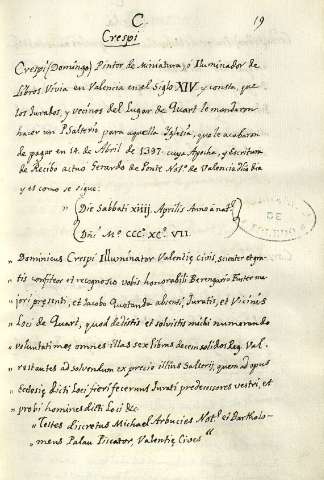 C.
19
Crespi
Crespi (Domingo) Pintor de Miniatura, ó Iluminador de
Libros Vivia en Valencia en el Siglo XIV y consta, que
los Jurados, y vecinos del Lugar de Quart le mandaron
hacer un Psalterio para aquella Iglesia, que le acabaron
de pagar en 14. de Abril de 1397. cuya Apocha, y Escritura
de Recibo actuo Gerardo de Ponte Not.º de Valencia dho dia
y es como se sigue:
„ Die Sabbati xiiij. Aprilis Anno à nat.
Dñi M.º CCC.º XC.º VII.
„ Dominicus Crespi Illuminator Valentiȩ civis, scienter et gra-
„ tis confiteor et recognosco vobis honorabili Berengario ma-
„ jori presenti, et Jacobo absenti, Juratis, et Vicinis
„ Loci de Quart, quod dedistis et solvistis michi numerando
„ voluntati meȩ omnes illas sex libras decem solidos Reg. Val.
„ restantes ad solvendum ex precio illius Salterij, quem ad opus
„ Ecclesiȩ dicti Loci fieri fecerunt Jurati predecessores vestri, et
„ probi homines dicti Loci &c.
„ Testes discretus Michael Arbucies Not.º et Bartholo-
„ meus Palau Piscator, Valentiȩ Cives “
DE